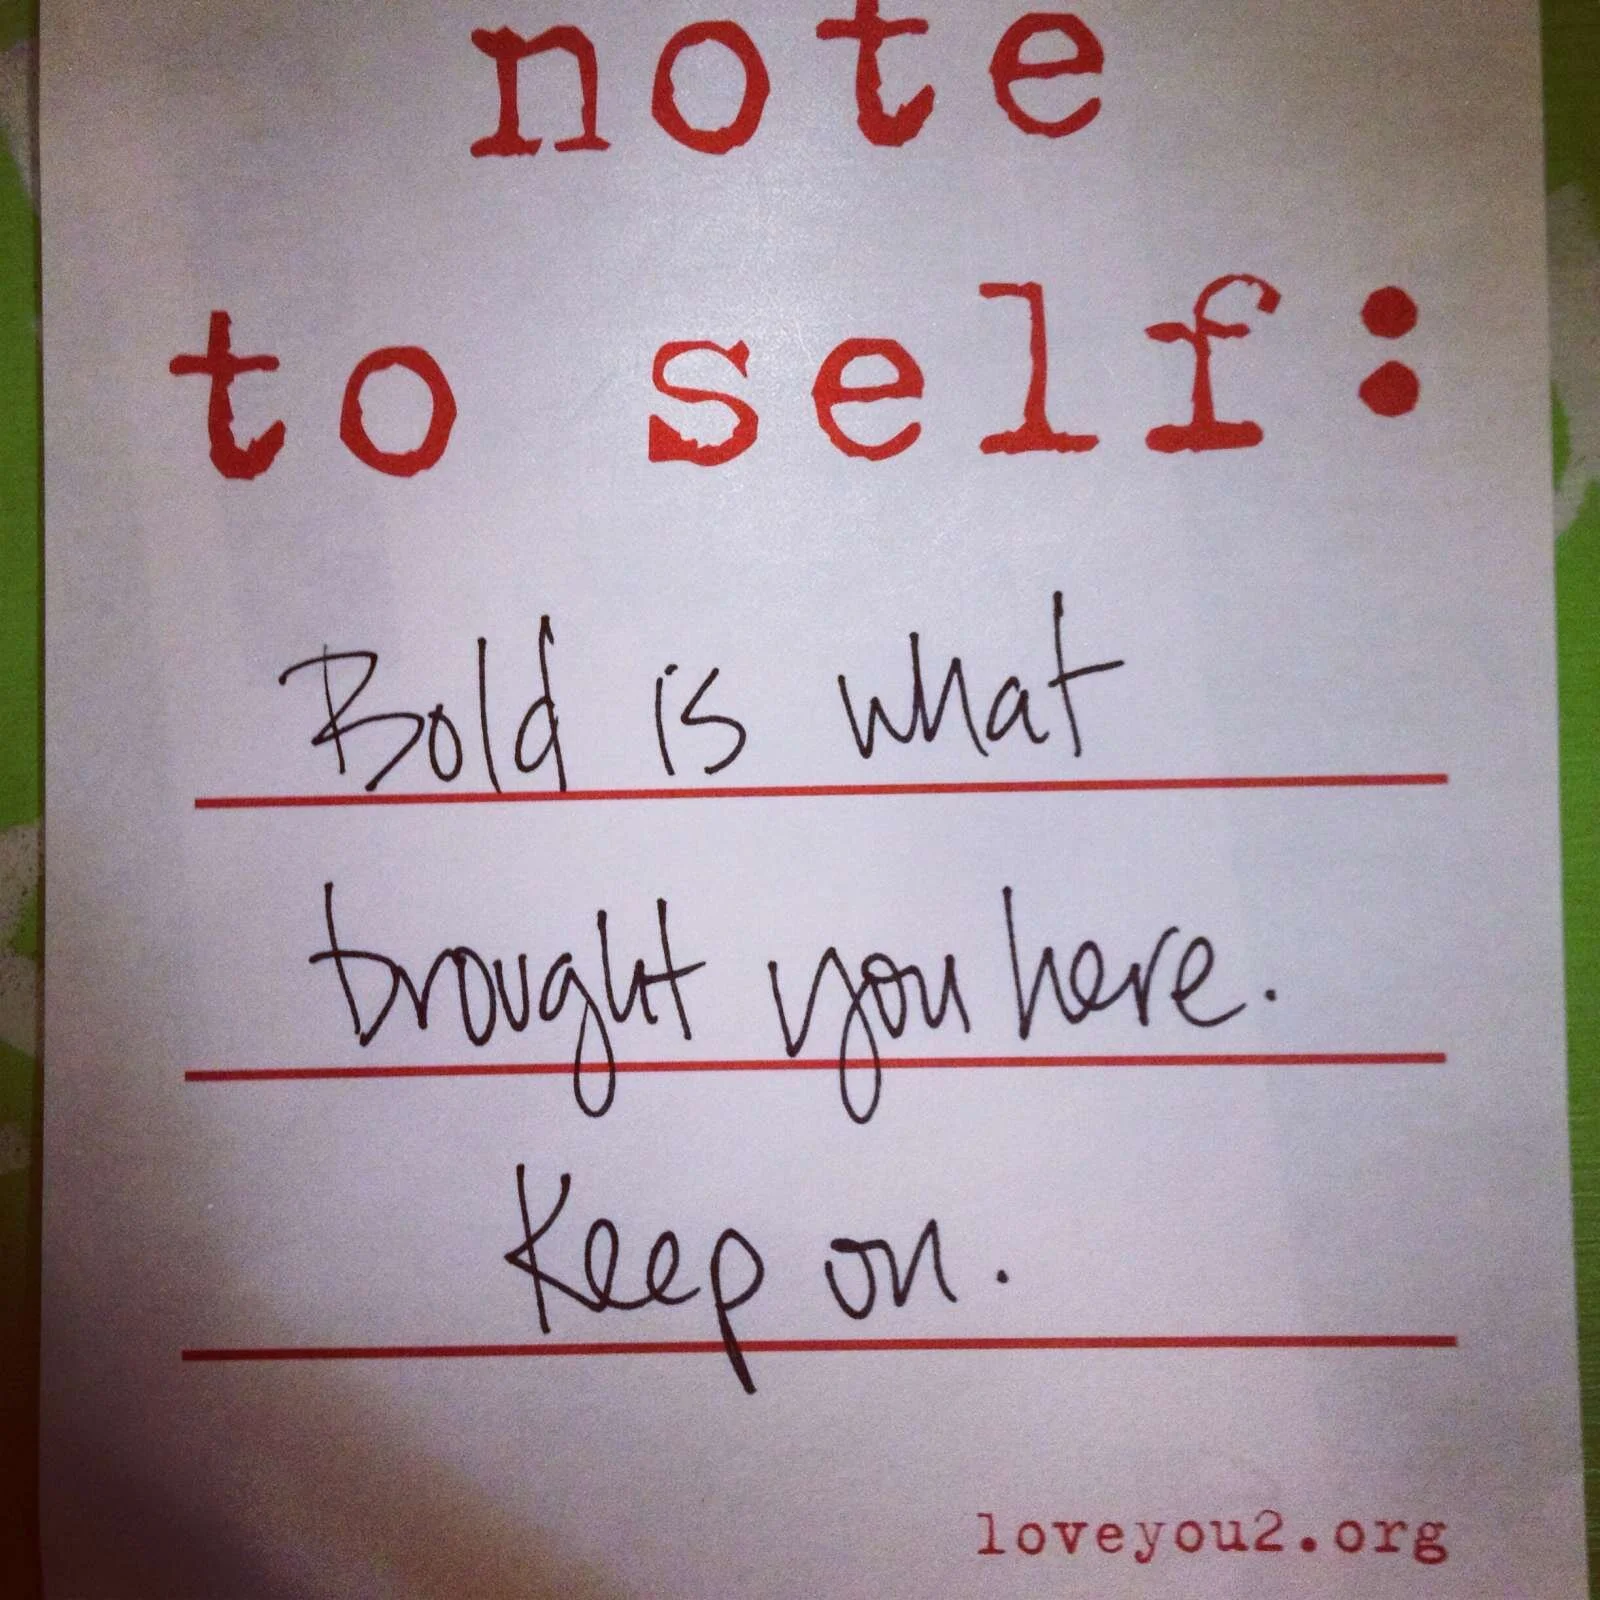 note
to self:
Bold is what
brought you here.
Keep on.
loveyou2.org